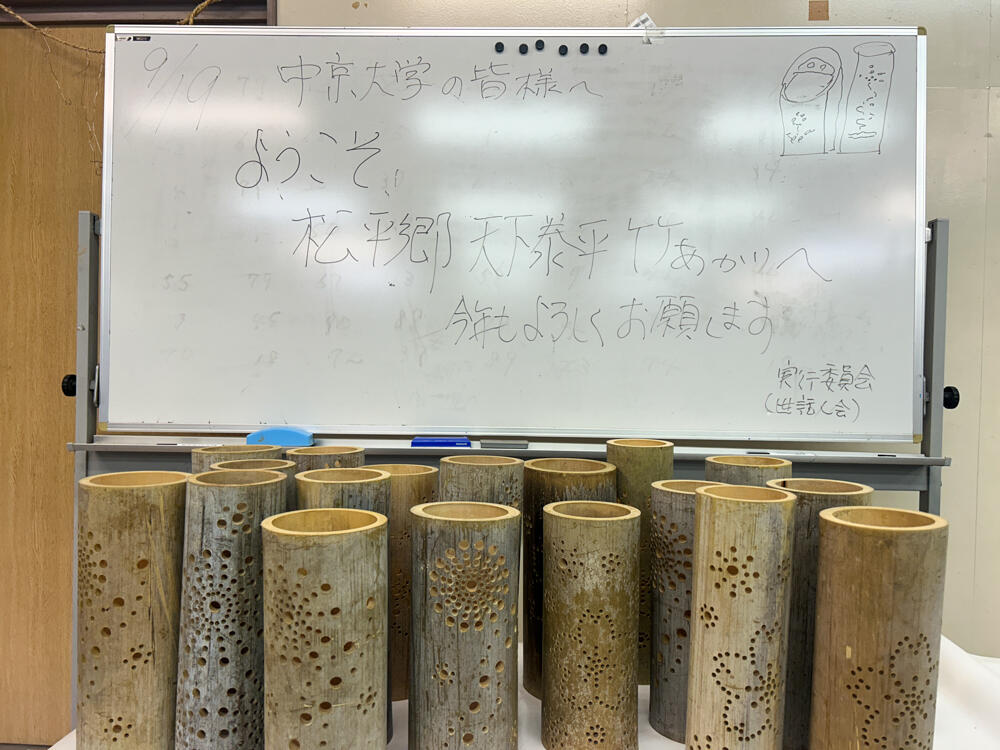 9/19 中京大学の皆様へ
ようこそ
松平郷 天下泰平 竹あかりへ
今年もよろしくお願します
実行委員会
(世話人会)